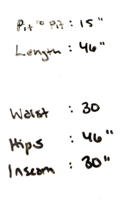 Pit to Pit : 15"
Length : 46"
Waist : 30
Hips : 46"
Inseam : 30"